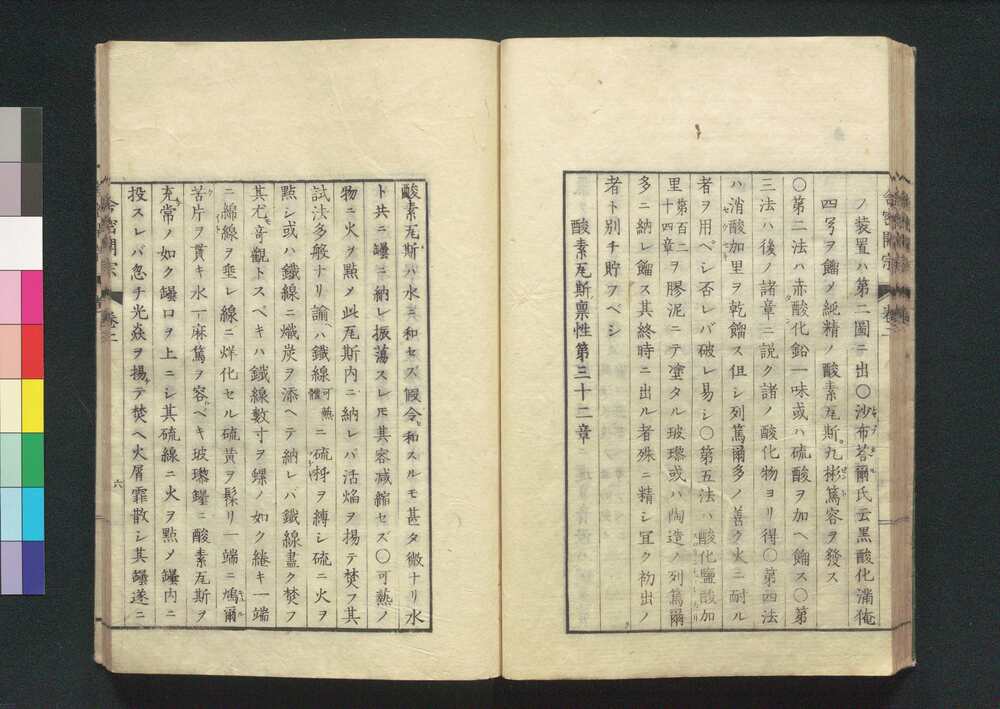 ノ装置ハ第二圖ニ出〇沙布荅爾氏云黒酸化滿俺
四穷ヲ餾メ純精ノ酸素瓦斯九彬篤容ヲ發ス
〇第二法ハ赤酸化鉛一味或ハ硫酸ヲ加ヘ餾ス〇第
三法ハ後ノ諸章ニ說ク諸ノ酸化物ヨリ得〇第四法
ハ消酸加里ヲ乾餾ス但シ列篤爾多ノ善ク火ニ耐ル
者ヲ用ベシ否レバ破レ易シ〇第五法ハ酸化鹽酸加
里第百二十四章ヲ膠泥ニテ塗タル玻瓈或ハ陶造ノ列篤爾
多ニ納レ餾ス其終時ニ出ル者殊ニ精シ宜ク初出ノ
者ト別チ貯フベシ
酸素瓦斯禀性第三十二章
酸素瓦斯ハ水ニ和セズ假令和スルモ甚タ微ナリ水
ト共ニ罎ニ納レ振蕩スレ𪜈其容減縮セズ〇可燕ノ
物ニ火ヲ點メ此瓦斯内ニ納レバ活焔ヲ揚テ焚フ其
試法多般ナリ諭ハ鐵線可燕體ニ硫ヲ縛シ硫ニ火ヲ
點シ或ハ鐵線ニ熾炭ヲ添ヘテ納レバ鐵線盡ク焚フ
其尤奇觀トスベキハ鐵線數寸ヲ螺ノ如ク綣キ一端
ニ綿線ヲ垂レ線ニ烊化セル硫黄ヲ髹リ一端ニ鳩爾
苦片ヲ貫キ水一麻篤ヲ容ベキ玻瓈罎ニ酸素瓦斯ヲ
充常ノ如ク罎口ヲ上ニシ其硫線ニ火ヲ點メ罎内ニ
投スレバ忽チ光焱ヲ揚テ焚ヘ火屑霏散シ其罎遂ニ
舎密開宗
卷二
六